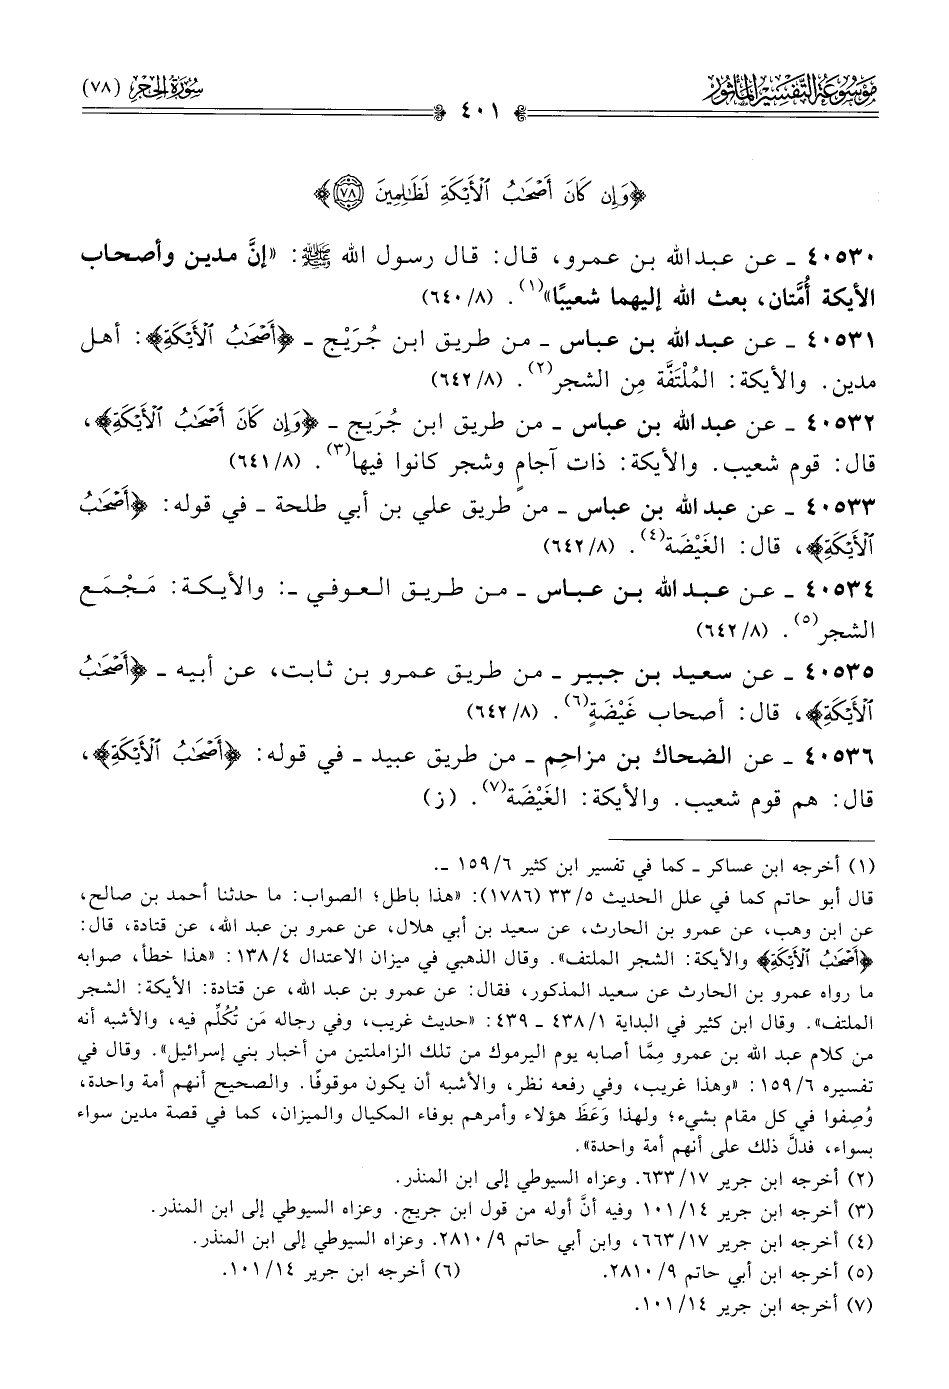 مَوْسُوعَةُ التَّفْسِيْرِ المَأْثُورِ
سُورَةُ الحِجْرِ (٧٨)
٤٠١
﴿وَإِن كَانَ أَصْحَٰبُ ٱلْأَيْكَةِ لَظَٰلِمِينَ ٧٨﴾
٤٠٥٣٠ ـ عن عبدالله بن عمرو، قال: قال رسول الله ﷺ: «إنَّ مدين وأصحاب
الأيكة أُمَّتان، بعث الله إليهما شعيبًا»(١). (٨/ ٦٤٠)
٤٠٥٣١ ـ عن عبدالله بن عباس ـ من طريق ابن جُرَيْج ـ ﴿أَصْحَٰبُ ٱلْأَيْكَةِ﴾: أهل
مدين. والأيكة: المُلْتَفَّة مِن الشجر(٢). (٨/ ٦٤٢)
٤٠٥٣٢ ـ عن عبدالله بن عباس ـ من طريق ابن جُرَيج ـ ﴿وَإِن كَانَ أَصْحَٰبُ ٱلْأَيْكَةِ﴾،
قال: قوم شعيب. والأيكة: ذات آجامٍ وشجر كانوا فيها(٣). (٨/ ٦٤١)
٤٠٥٣٣ ـ عن عبدالله بن عباس ـ من طريق علي بن أبي طلحة ـ في قوله: ﴿أَصْحَٰبُ
ٱلْأَيْكَةِ﴾، قال: الغَيْضَة(٤). (٨/ ٦٤٢)
٤٠٥٣٤ ـ عن عبدالله بن عباس ـ من طريق العوفي ـ: والأيكة: مَجْمَع
الشجر(٥). (٨/ ٦٤٢)
٤٠٥٣٥ ـ عن سعيد بن جبير ـ من طريق عمرو بن ثابت، عن أبيه ـ ﴿أَصْحَٰبُ
ٱلْأَيْكَةِ﴾، قال: أصحاب غَيْضَةٍ(٦). (٨/ ٦٤٢)
٤٠٥٣٦ ـ عن الضحاك بن مزاحم ـ من طريق عبيد ـ في قوله: ﴿أَصْحَٰبُ ٱلْأَيْكَةِ﴾،
قال: هم قوم شعيب. والأيكة: الغَيْضَة(٧). (ز)
(١) أخرجه ابن عساكر ـ كما في تفسير ابن كثير ٦/ ١٥٩ ـ.
قال أبو حاتم كما في علل الحديث ٥/ ٣٣ (١٧٨٦): «هذا باطل؛ الصواب: ما حدثنا أحمد بن صالح،
عن ابن وهب، عن عمرو بن الحارث، عن سعيد بن أبي هلال، عن عمرو بن عبد الله، عن قتادة، قال:
﴿أَصْحَٰبُ ٱلْأَيْكَةِ﴾ والأيكة: الشجر الملتف». وقال الذهبي في ميزان الاعتدال ٤/ ١٣٨: «هذا خطأ، صوابه
ما رواه عمرو بن الحارث عن سعيد المذكور، فقال: عن عمرو بن عبد الله، عن قتادة: الأيكة: الشجر
الملتف». وقال ابن كثير في البداية ١/ ٤٣٨ ـ ٤٣٩: «حديث غريب، وفي رجاله مَن تُكُلِّم فيه، والأشبه أنه
من كلام عبد الله بن عمرو مِمَّا أصابه يوم اليرموك من تلك الزاملتين من أخبار بني إسرائيل». وقال في
تفسيره ٦/ ١٥٩: «وهذا غريب، وفي رفعه نظر، والأشبه أن يكون موقوفًا. والصحيح أنهم أمة واحدة،
وُصِفوا في كل مقام بشيء؛ ولهذا وَعَظَ هؤلاء وأمرهم بوفاء المكيال والميزان، كما في قصة مدين سواء
بسواء، فدلَّ ذلك على أنهم أمة واحدة».
(٢) أخرجه ابن جرير ١٧/ ٦٣٣. وعزاه السيوطي إلى ابن المنذر.
(٣) أخرجه ابن جرير ١٤/ ١٠١ وفيه أنَّ أوله من قول ابن جريج. وعزاه السيوطي إلى ابن المنذر.
(٤) أخرجه ابن جرير ١٧/ ٦٦٣، وابن أبي حاتم ٩/ ٢٨١٠. وعزاه السيوطي إلى ابن المنذر.
(٥) أخرجه ابن أبي حاتم ٩/ ٢٨١٠. (٦) أخرجه ابن جرير ١٤/ ١٠١.
(٧) أخرجه ابن جرير ١٤/ ١٠١.